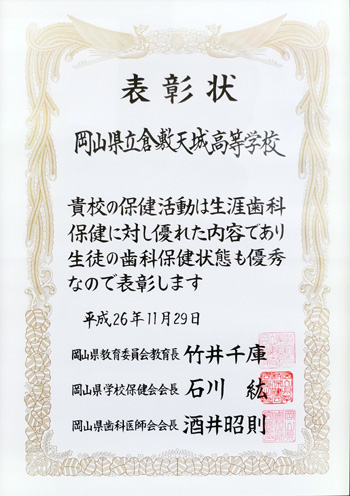 表彰状
岡山県立倉敷天城高等学校
貴校の保健活動は生涯歯科
保健に対し優れた内容であり
生徒の歯科保健状態も優秀
なので表彰します
平成26年11月29日
岡山県教育委員会教育長 竹井千庫
岡山県学校保健会会長 石川 紘
岡山県歯科医師会会長 酒井昭則